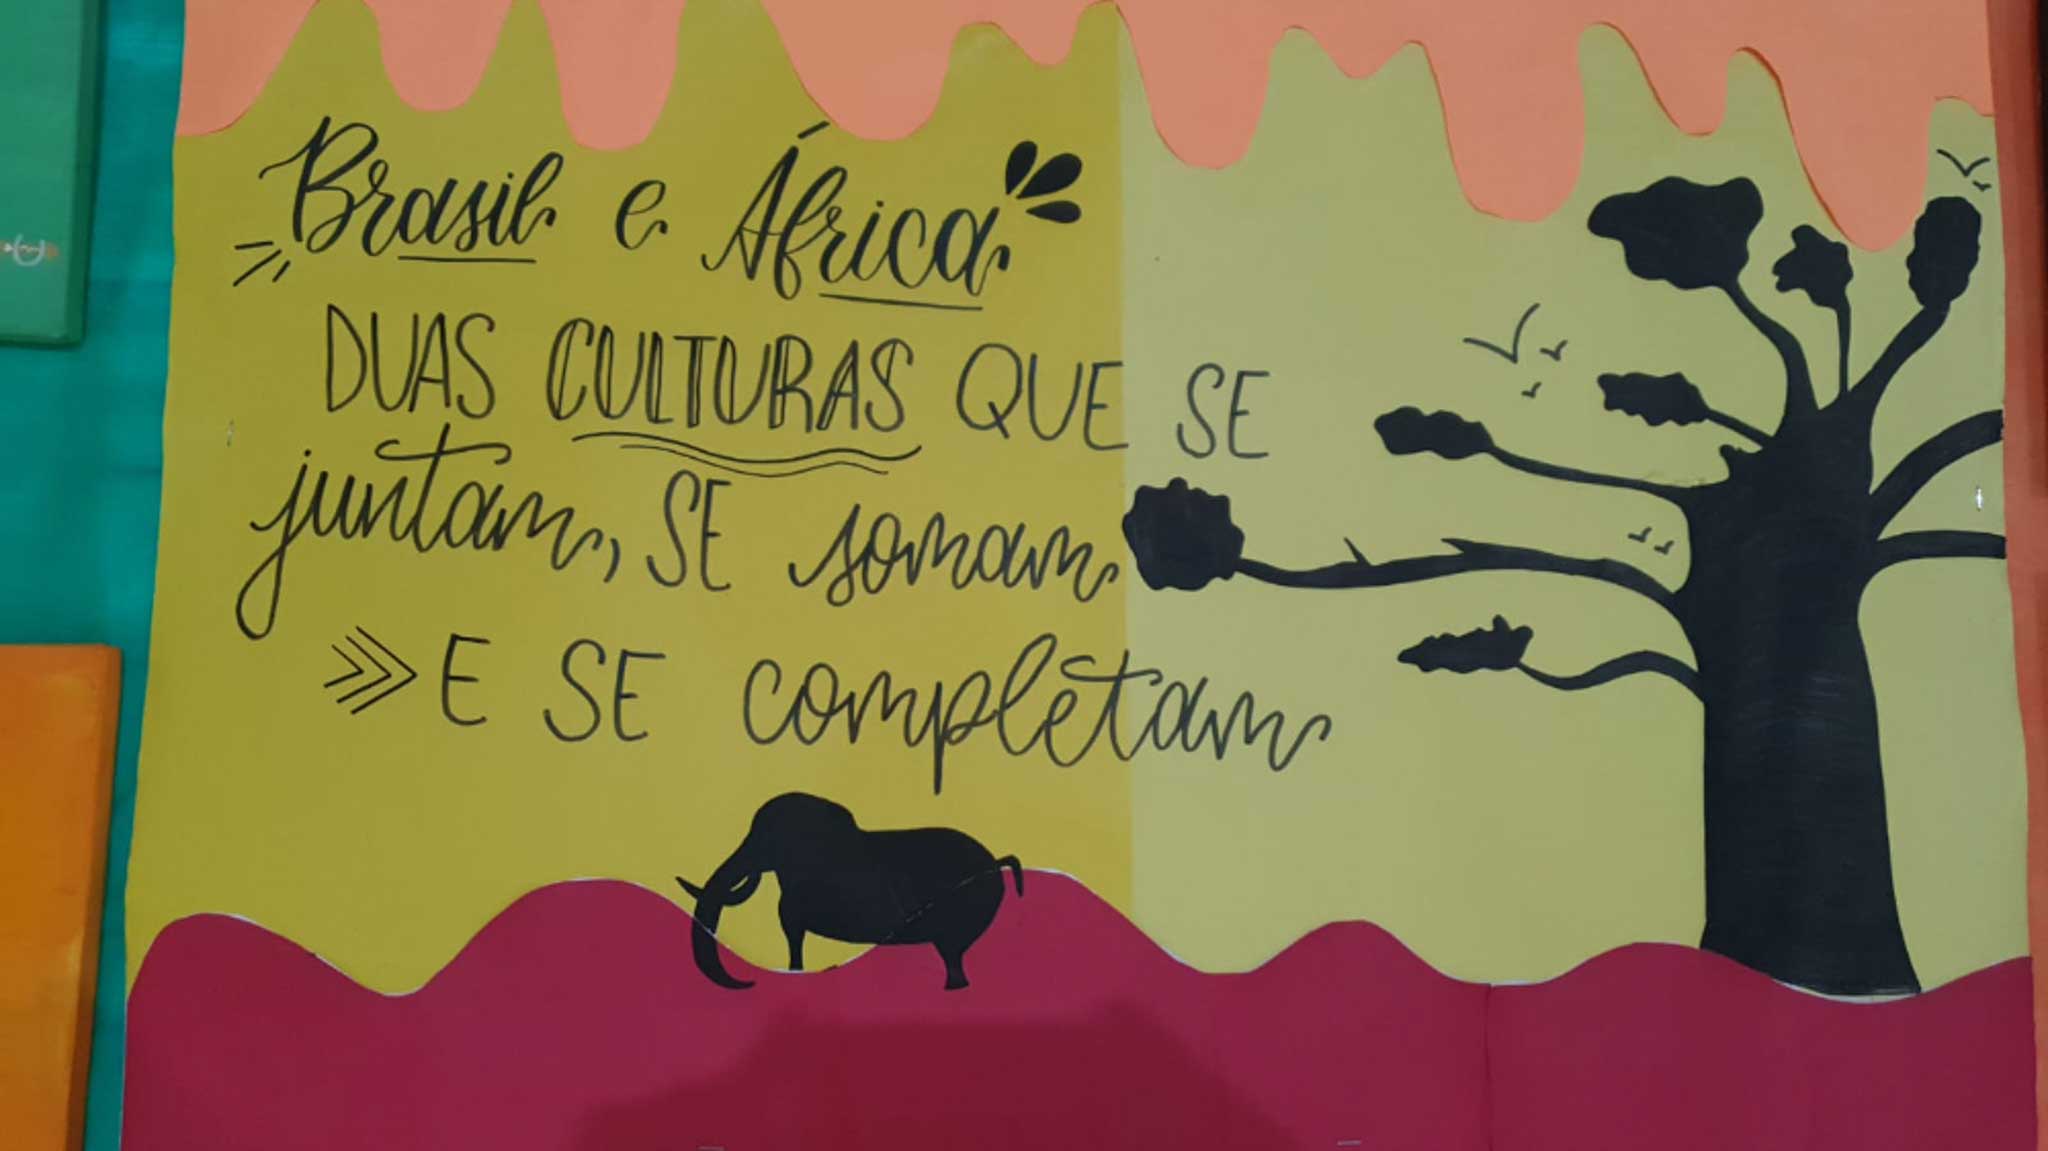 Brasil e África
DUAS CULTURAS QUE SE
juntam, SE somam
E SE completam